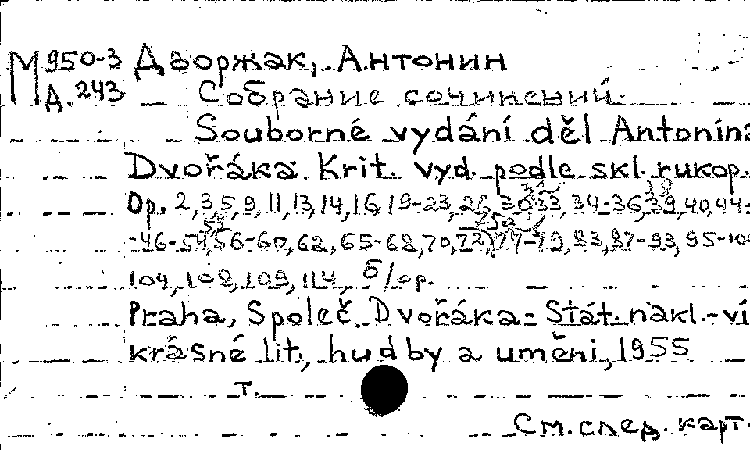 М 950-3 Дворжак, Антонин
Д. 243 Собрание сочинений.
Souborné vydání děl Antonína
Dvořáka. Krit. vyd. podle skl. rukop.
Op. 2, 3, 5, 9, 11, 13, 14, 16, 19-23, 34-36, 39, 40, 44-
-46-54, 56-60, 62, 65-68, 70, 72, 77-79, 83, 87-93, 95-
104, 108, 109, 114, б/ор.
Praha, Společ. Dvořáka - Stát. nakl.-ví
krásné lit., hudby a umění, 1955
т.
См. след. карт.